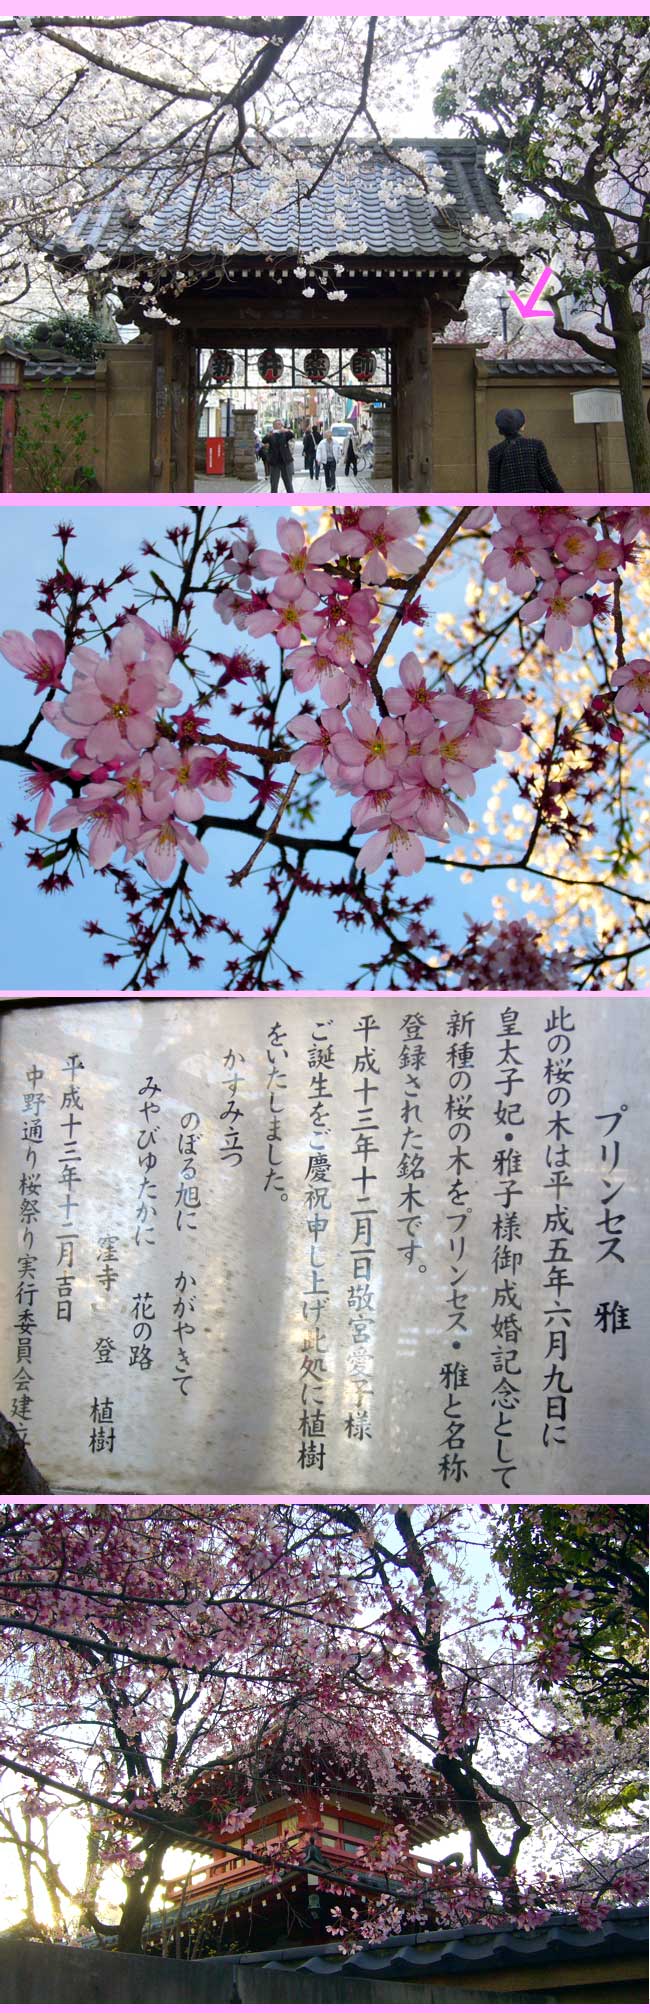 新井薬師
プリンセス 雅
此の桜の木は平成五年六月九日に
皇太子妃・雅子様御成婚記念として
新種の桜の木をプリンセス・雅と名称
登録された銘木です。
平成十三年十二月一日敬宮愛子様
ご誕生をご慶祝申し上げ此処に植樹
をいたしました。
かすみ立つ
のぼる旭に かがやきて
みやびゆたかに 花の路
窪寺 登 植樹
平成十三年十二月吉日
中野通り桜祭り実行委員会建立